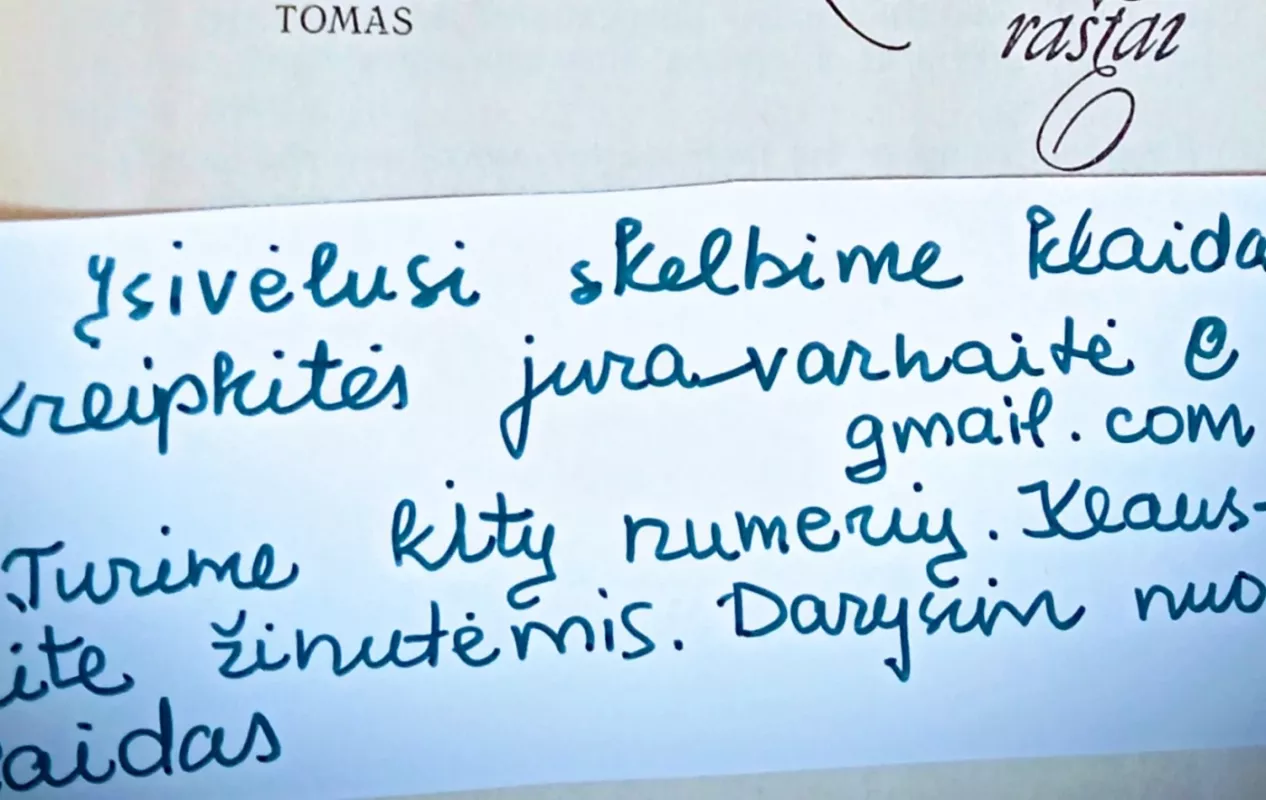 TOMAS
raštai
Įsivėlusi skelbime klaida
kreipkitės jura_varnaitė @
gmail.com
Turime kitų numerių. Klaus-
ite žinutėmis. Darysim nuo
aidas